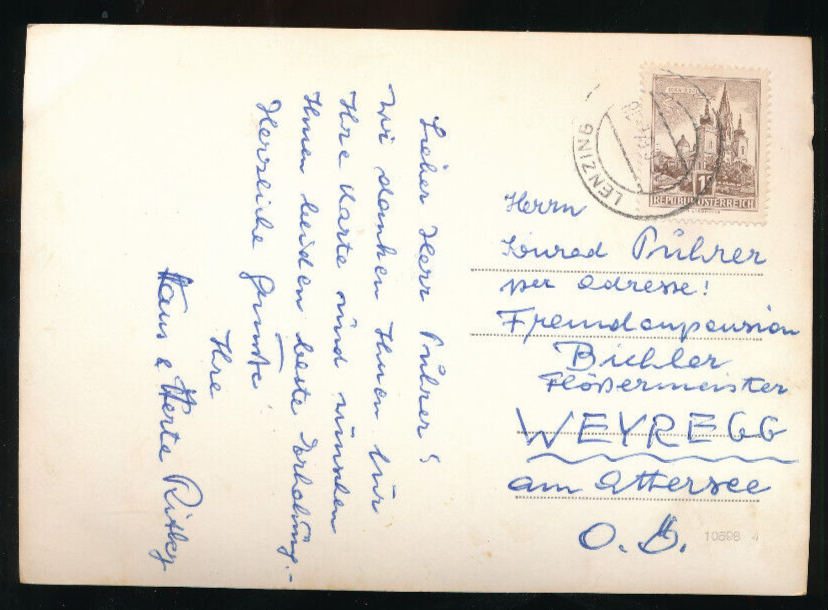 Lieber Herr Pührer!
Wir danken Ihnen für
Ihre Karte und wünschen
Ihnen beiden beste Erholung.-
Herzliche Grüße
Ihre
Hans & Herta
LENZING
REPUBLIK ÖSTERREICH
Herrn
Konrad Pührer
per Adresse!
Fremdenpension
Bichler
Flößermeister
WEYREGG
am Attersee
O.Ö.
10698 4